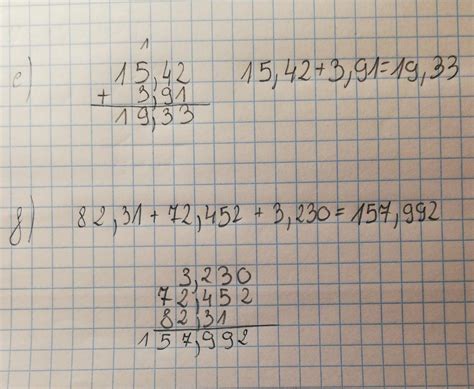 1
e) 15,42 15,42+3,91=19,33
+ 3,91
19,33
f) 82,31 + 72,452 + 3,230 = 157,992
3,230
72,452
82,31
157,992